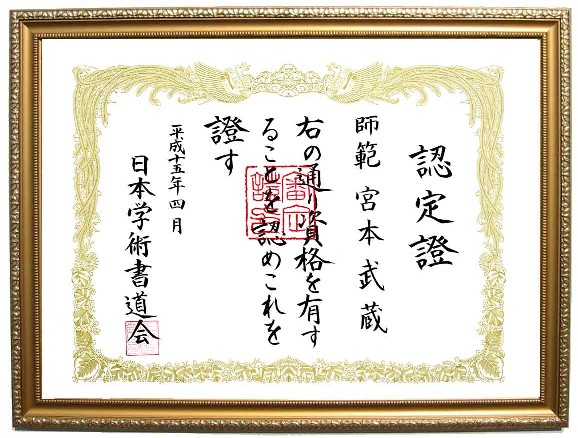 認定證
師範 宮本武蔵
右の通り資格を有す
ることを認めこれを
證す
平成十五年四月
日本学術書道会